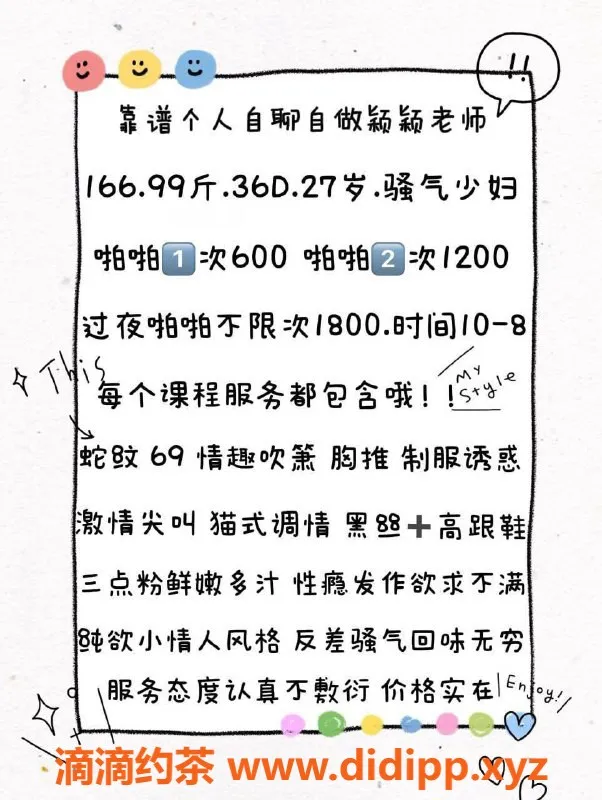 !!
靠谱个人自聊自做颖颖老师
166.99斤.36D.27岁.骚气少妇
啪啪1️⃣次600 啪啪2️⃣次1200
过夜啪啪不限次1800.时间10-8
This
My
Style
每个课程服务都包含哦！！
蛇蚊 69 情趣吹箫 胸推 制服诱惑
激情尖叫 猫式调情 黑丝➕高跟鞋
三点粉鲜嫩多汁 性瘾发作欲求不满
纯欲小情人风格 反差骚气回味无穷
服务态度认真不敷衍 价格实在
Enjoy!
滴滴约茶 www.didipp.xyz